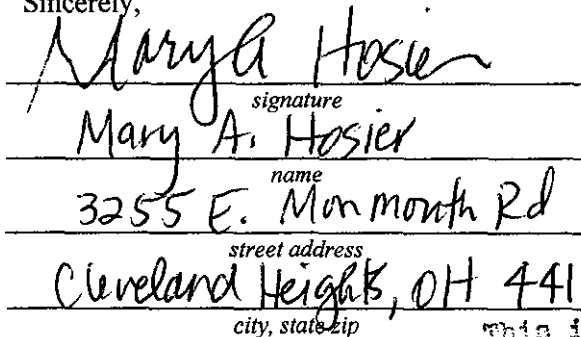 Sincerely,
Mary A Hosier
signature
Mary A. Hosier
name
3255 E. Monmouth Rd
street address
Cleveland Heights, OH 441
city, state zip
This i